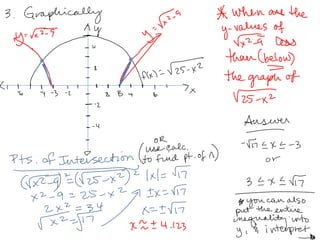 3. Graphically
y = √x²-9
y = √x²-9
y
x
4
2
-2
-4
-6
-4
-3
-2
3
4
6
f(x) = √25-x²
* When are the
y-values of
√x²-9 less
than (below)
the graph of
√25-x²
Answer
-√17 ≤ x ≤ -3
or
3 ≤ x ≤ √17
* you can also
put the entire
inequality into
y, & interpret
OR
(use calc.
to find pt. of ∩)
Pts. of Intersection
(√x²-9)² = (√25-x²)²
x²-9 = 25-x²
2x² = 34
√x² = √17
|x| = √17
±x = √17
x = ±√17
x ≈ ± 4.123